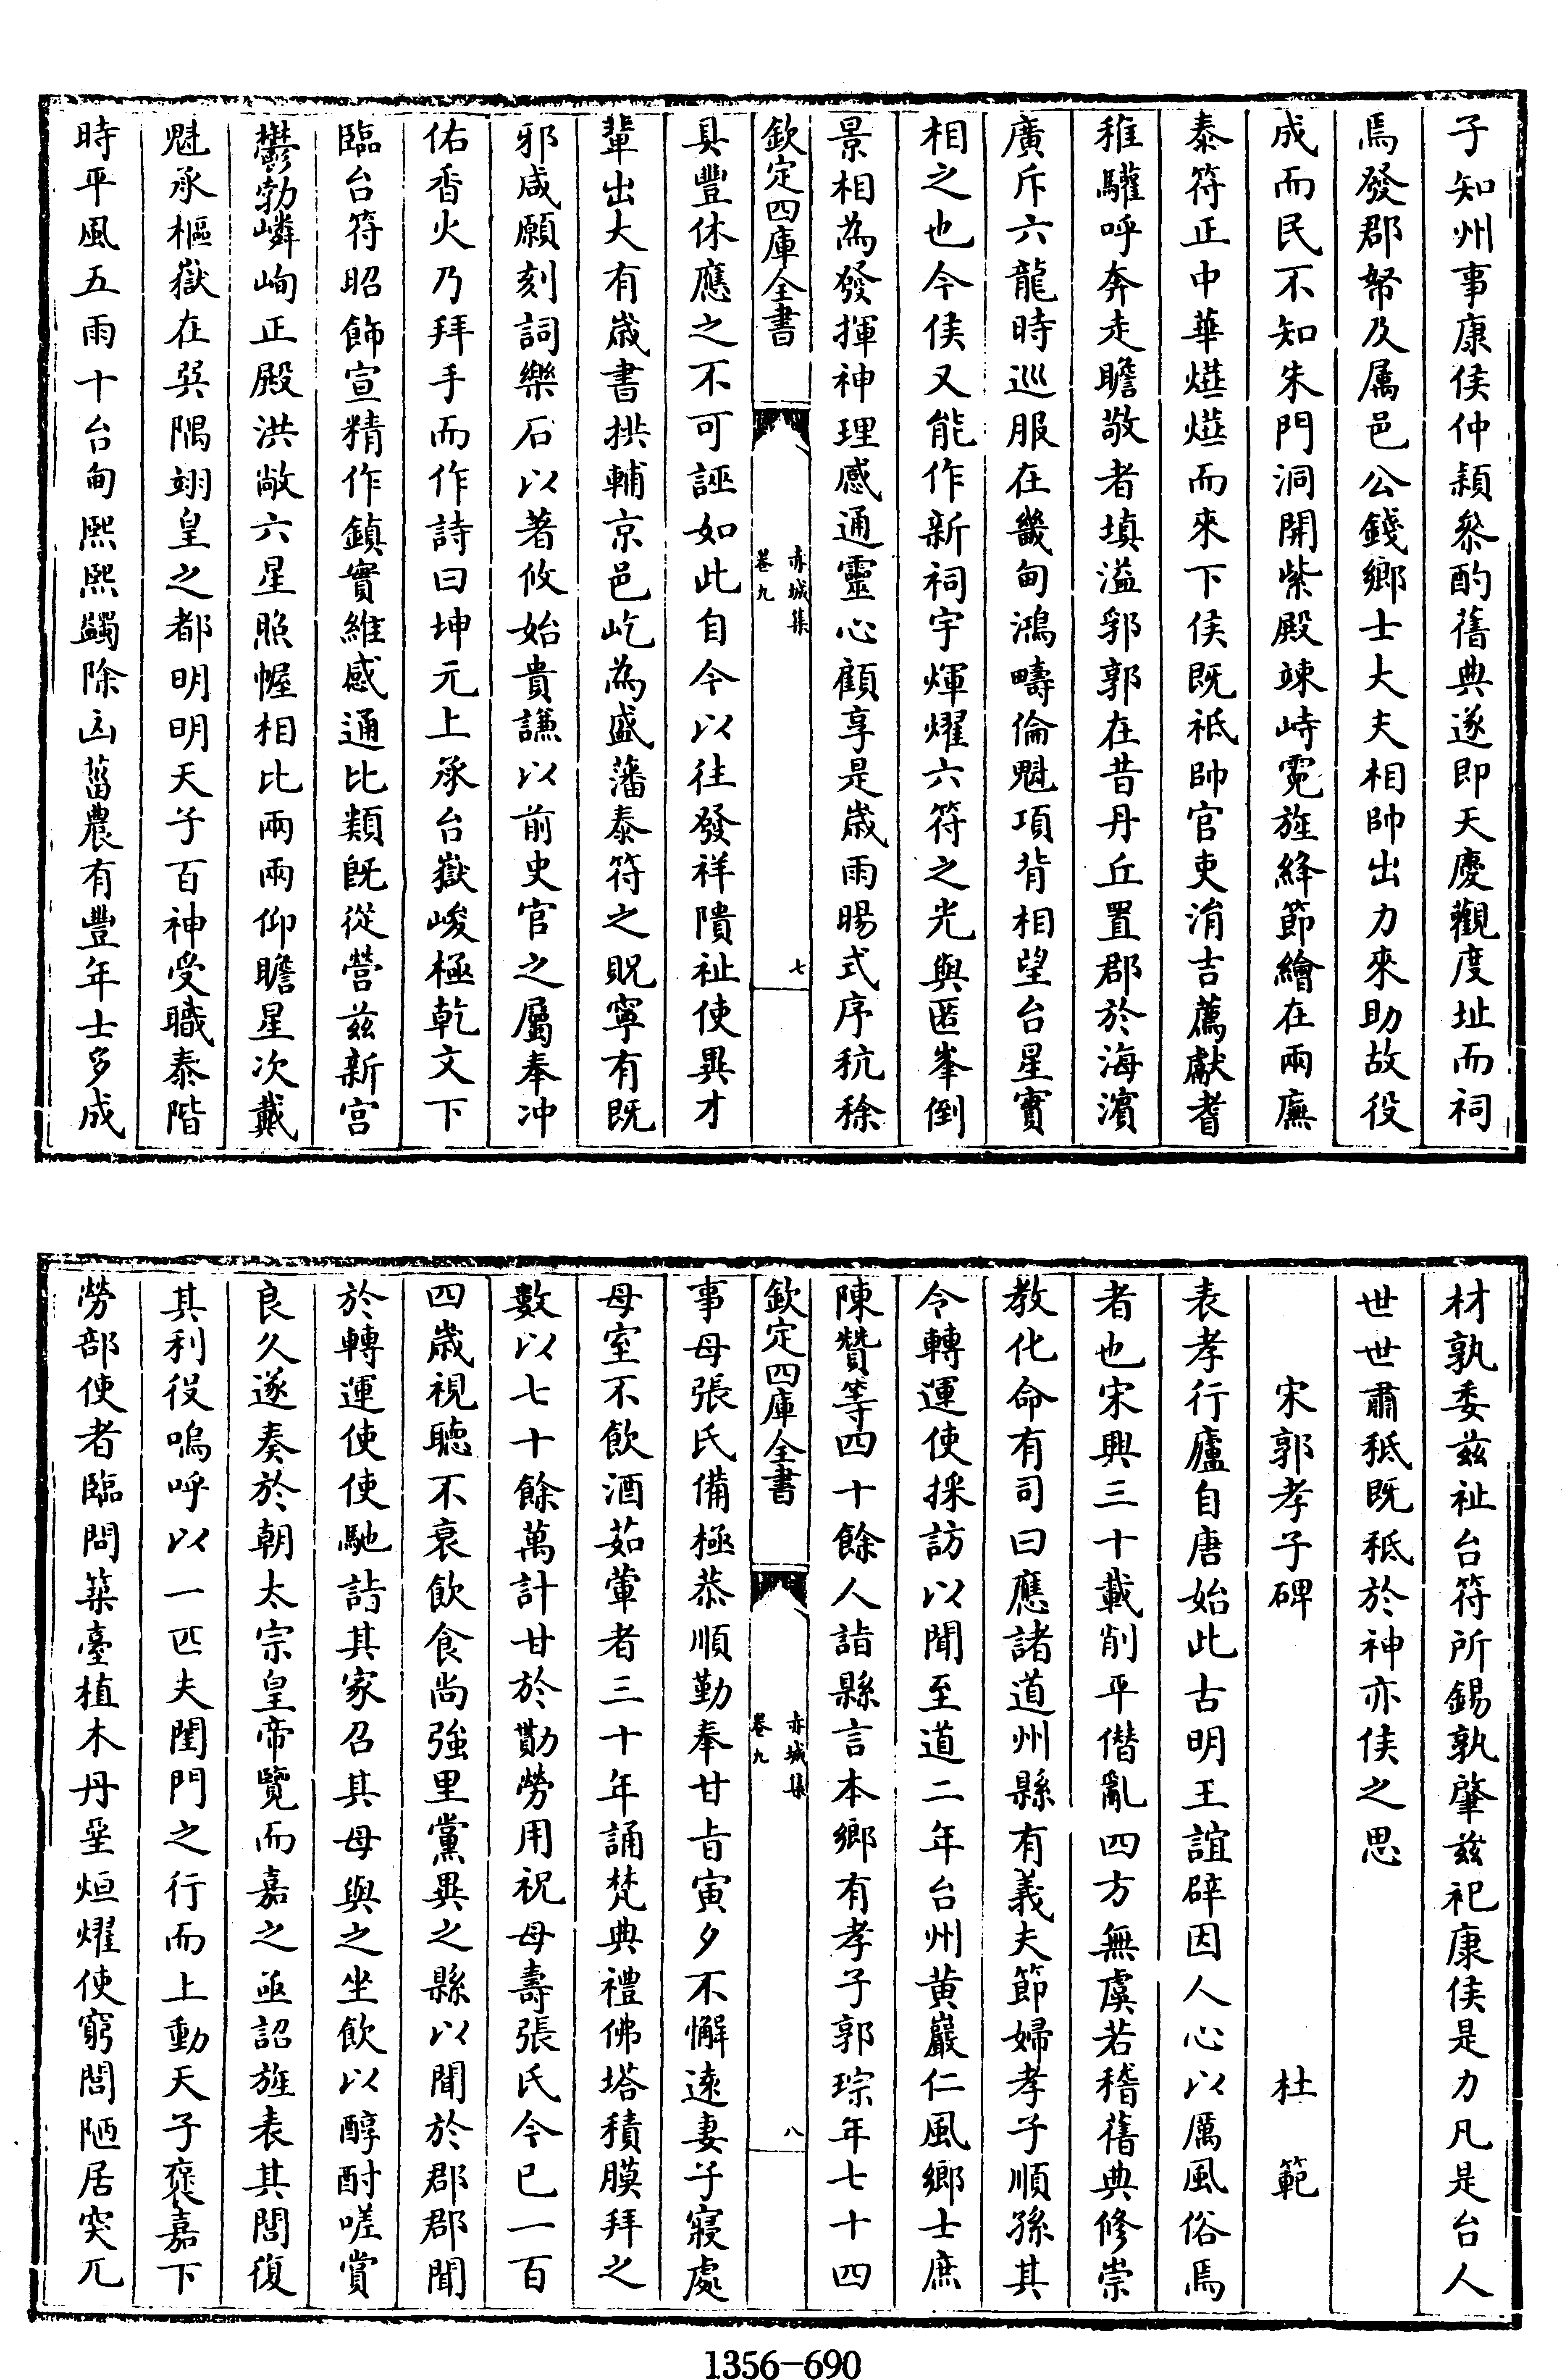 子知州事康侯仲頴叅酌舊典遂即天慶觀度址而祠
焉發郡帑及属邑公錢鄉士大夫相帥出力來助故役
成而民不知朱門洞開紫殿竦峙霓旌絳節繪在兩廡
泰符正中華㷸㷸而來下侯既祗帥官吏涓吉薦獻耆
稚驩呼奔走瞻敬者填溢郛郭在昔丹丘置郡於海濱
廣斥六龍時巡服在畿甸鴻疇倫魁項背相望台星實
相之也今侯又能作新祠宇煇耀六符之光與匿峯倒
景相為發揮神理感通靈心顧享是歲雨暘式序秔稌
欽定四庫全書
赤城集
卷九
七
具豐休應之不可誣如此自今以往發祥隤祉使異才
輩出大有歲書拱輔京邑屹為盛藩泰符之貺寧有既
邪咸願刻詞樂石以著攸始貴謙以前史官之屬奉冲
佑香火乃拜手而作詩曰坤元上承台嶽峻極乾文下
臨台符昭飾宣精作鎮實維感通比類既從營兹新宫
鬱勃嶙峋正殿洪敞六星照幄相比兩兩仰瞻星次戴
魁承樞嶽在巽隅翊皇之都明明天子百神受職泰階
時平風五雨十台甸熙熙蠲除凶菑農有豐年士多成
材孰委兹祉台符所錫孰肇兹祀康侯是力凡是台人
世世肅祗既祗於神亦侯之思
宋郭孝子碑　杜範
表孝行廬自唐始此古明王誼辟因人心以厲風俗焉
者也宋興三十載削平僭亂四方無虞若稽舊典修崇
教化命有司曰應諸道州縣有義夫節婦孝子順孫其
令轉運使採訪以聞至道二年台州黄巖仁風鄉士庶
陳贊等四十餘人詣縣言本鄉有孝子郭琮年七十四
欽定四庫全書
赤城集
卷九
八
事母張氏備極恭順勤奉甘旨寅夕不懈遠妻子寢處
母室不飲酒茹葷者三十年誦梵典禮佛塔積膜拜之
數以七十餘萬計甘於勩勞用祝母壽張氏今已一百
四歲視聽不衰飲食尚強里黨異之縣以聞於郡郡聞
於轉運使使馳詣其家召其母與之坐飲以醇酎嗟賞
良久遂奏於朝太宗皇帝覽而嘉之亟詔旌表其閭復
其利役嗚呼以一匹夫閨門之行而上動天子褒嘉下
勞部使者臨問築臺植木丹堊烜燿使窮閻陋居突兀
1356-690